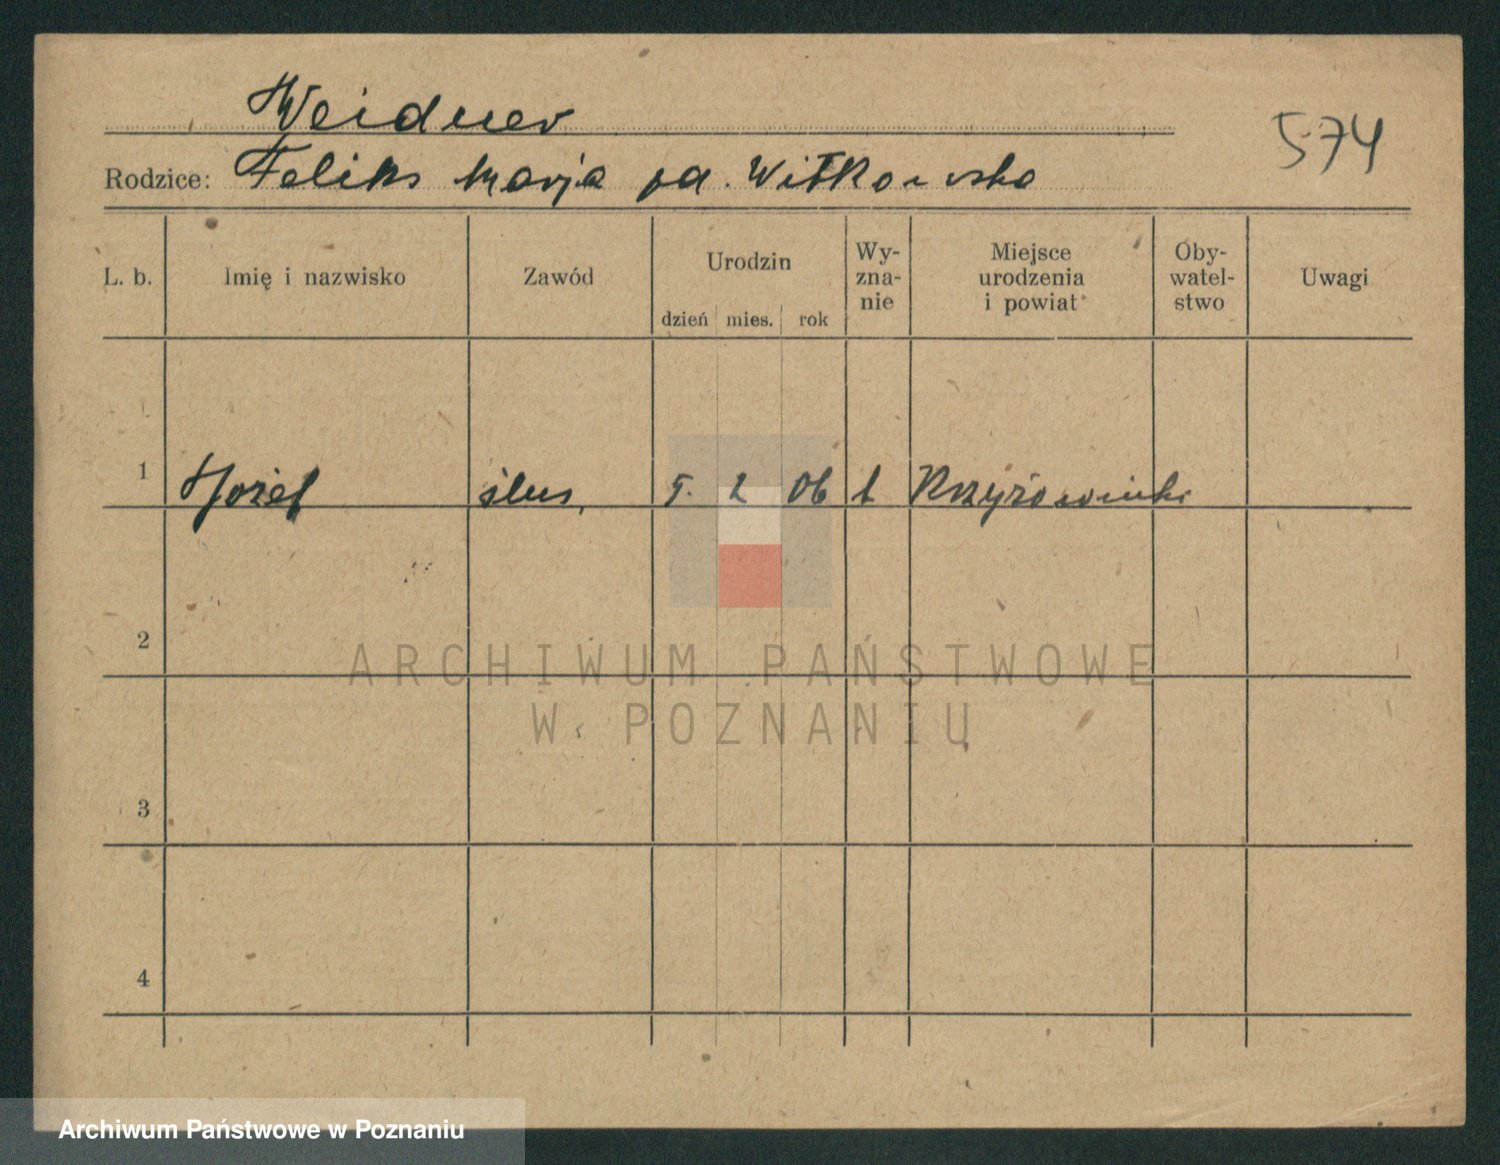 Weidner
574
Rodzice: Feliks Marja od. Witkowska
L. b. Imię i nazwisko Zawód Urodzin dzień mies. rok Wy-zna-nie Miejsce urodzenia i powiat Oby-watel-stwo Uwagi
1 Józef ślus. 5. 2 06 k Krzyżowniki
2
3
4
ARCHIWUM PAŃSTWOWE
W POZNANIU
Archiwum Państwowe w Poznaniu